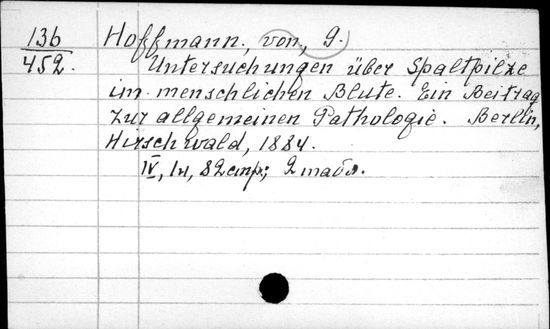 136
452.
Hoffmann, von, G.
Untersuchungen über Spaltpilze
im menschlichen Blute. Ein Beitrag
zur allgemeinen Pathologie. Berlin,
Hirschwald, 1884.
IV, 1н, 82 стр; 2 табл.